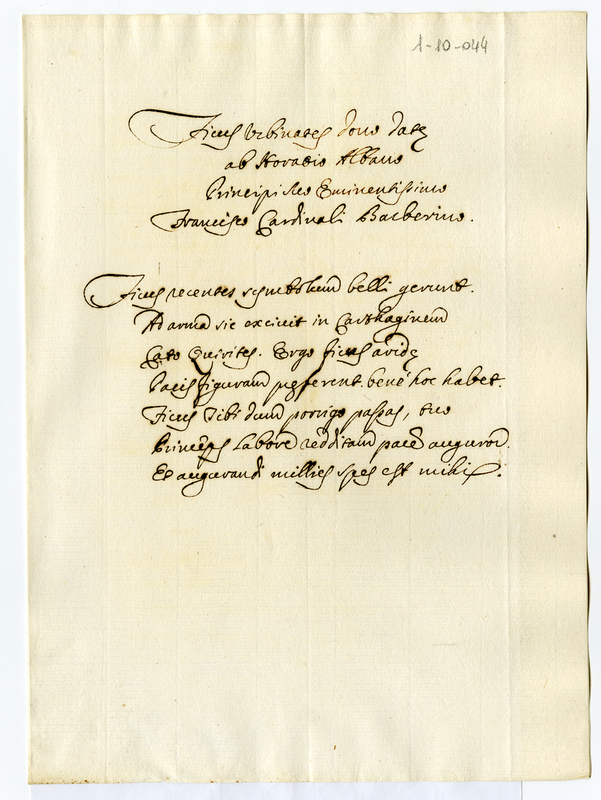 1-10-044
Ficus Vrbinates dono datę
ab Horatio Albano
Principi suo Eminentissimo
Francisco Cardinali Barberino.
Ficus recentes symbolum belli gerunt.
Ad arma sic exciuit in Carthaginem
Cato Quirites. Ergo ficus aridę
Pacis figuram pręferent. bene hoc habet.
Ficus Tibi dum porrigo passas, tuo
Princeps labore redditam pacē auguror.
Et augurandi millies spes est mihi.